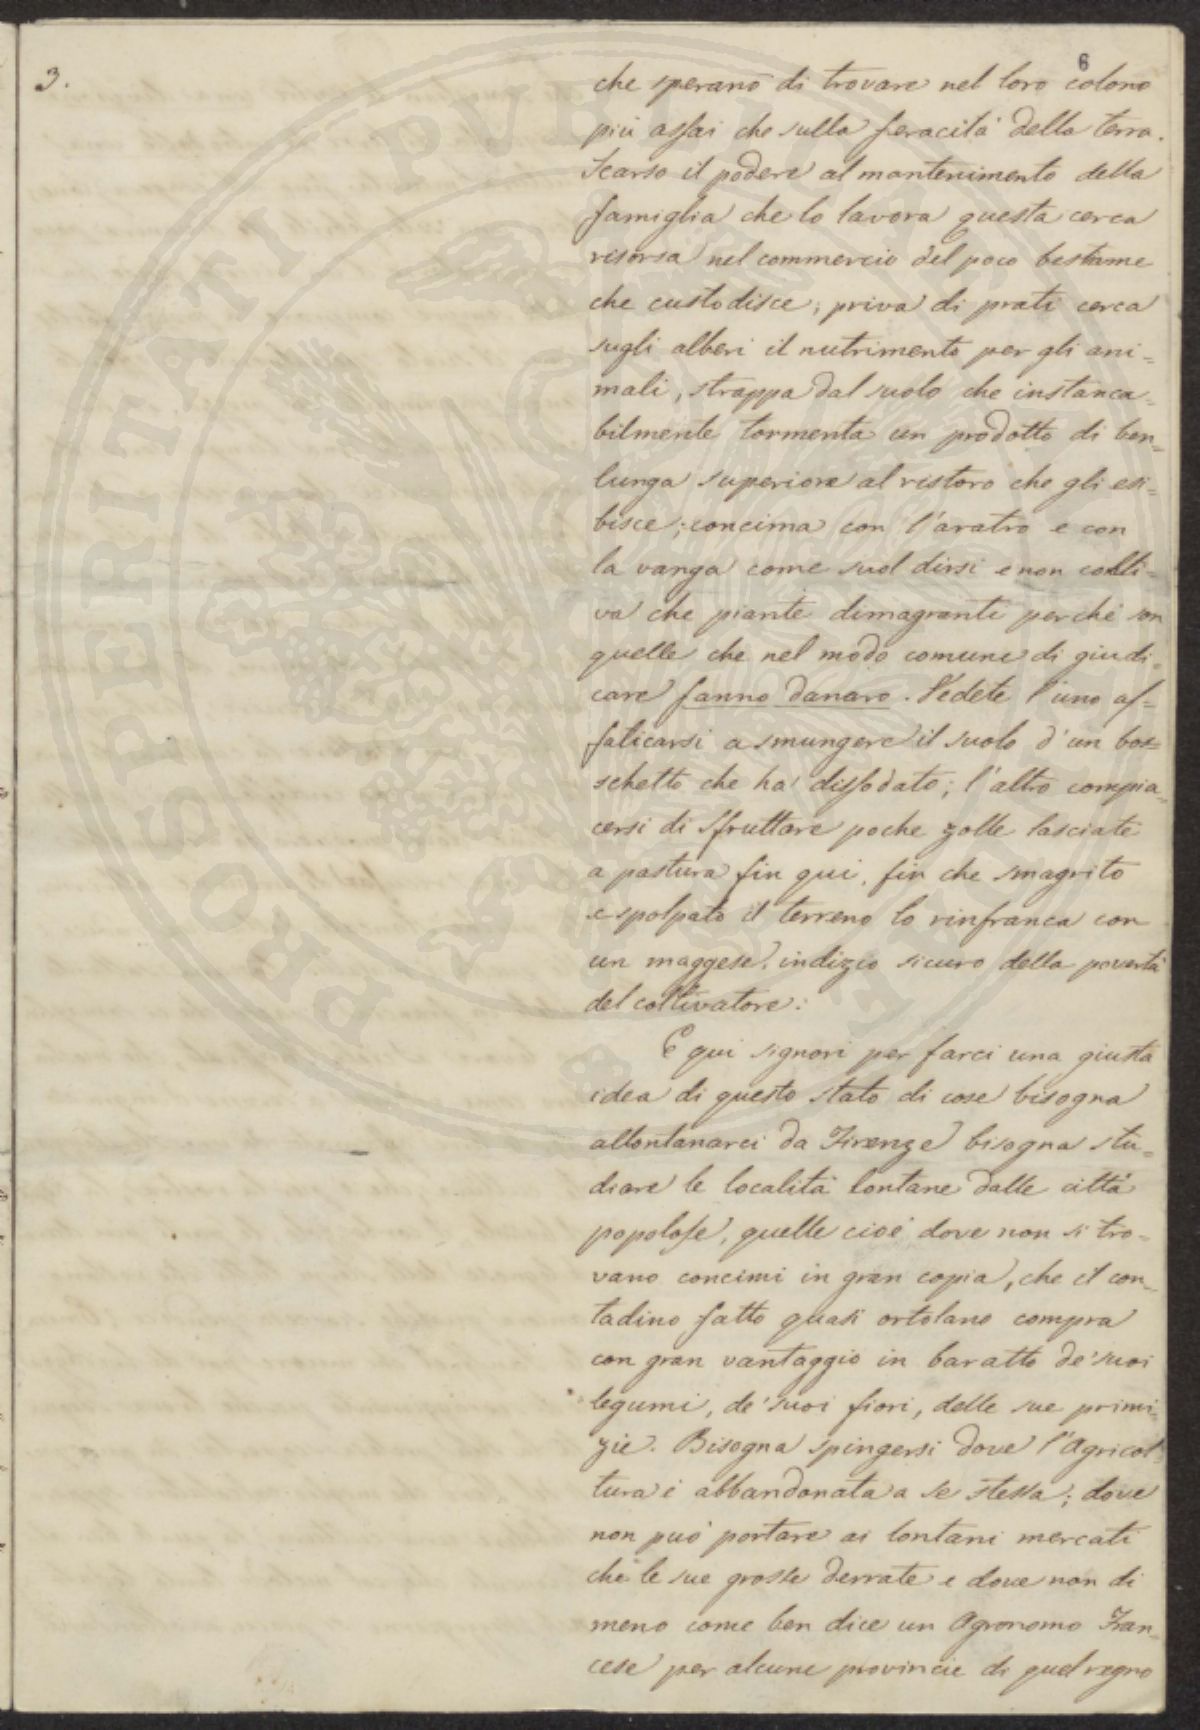 3.
6
che sperano di trovare nel loro colono
più assai che sulla feracità della terra.
Scarso il podere al mantenimento della
famiglia che lo lavora questa cerca
risorsa nel commercio del poco bestiame
che custodisce; priva di prati cerca
sugli alberi il nutrimento per gli ani=
mali, strappa dal suolo che instanca=
bilmente tormenta un prodotto di ben=
lunga superiore al ristoro che gli esi=
bisce; concima con l'aratro e con
la vanga come suol dirsi e non colti=
va che piante dimagranti perchè son
quelle che nel modo comune di giudi=
care fanno danaro. Vedete l'uno af=
faticarsi a smungere il suolo d'un bos=
schetto che ha dissodato; l'altro compia=
cersi di sfruttare poche zolle lasciate
a pastura fin qui, fin che smagrito
e spolpato il terreno lo rinfranca con
un maggese, indizio sicuro della povertà
del coltivatore:
E qui signori per farci una giusta
idea di questo stato di cose bisogna
allontanarci da Firenze bisogna stu=
diare le località lontane dalle città
popolose, quelle cioè dove non si tro=
vano concimi in gran copia, che il con=
tadino fatto quasi ortolano compra
con gran vantaggio in baratto de' suoi
legumi, de' suoi fiori, delle sue primi=
zie. Bisogna spingersi dove l'Agricol=
tura è abbandonata a se stessa; dove
non può portare ai lontani mercati
che le sue grosse derrate e dove non di
meno come ben dice un Agronomo Fran=
cese per alcune provincie di quel regno
PROSPERITATI PVBLICAE